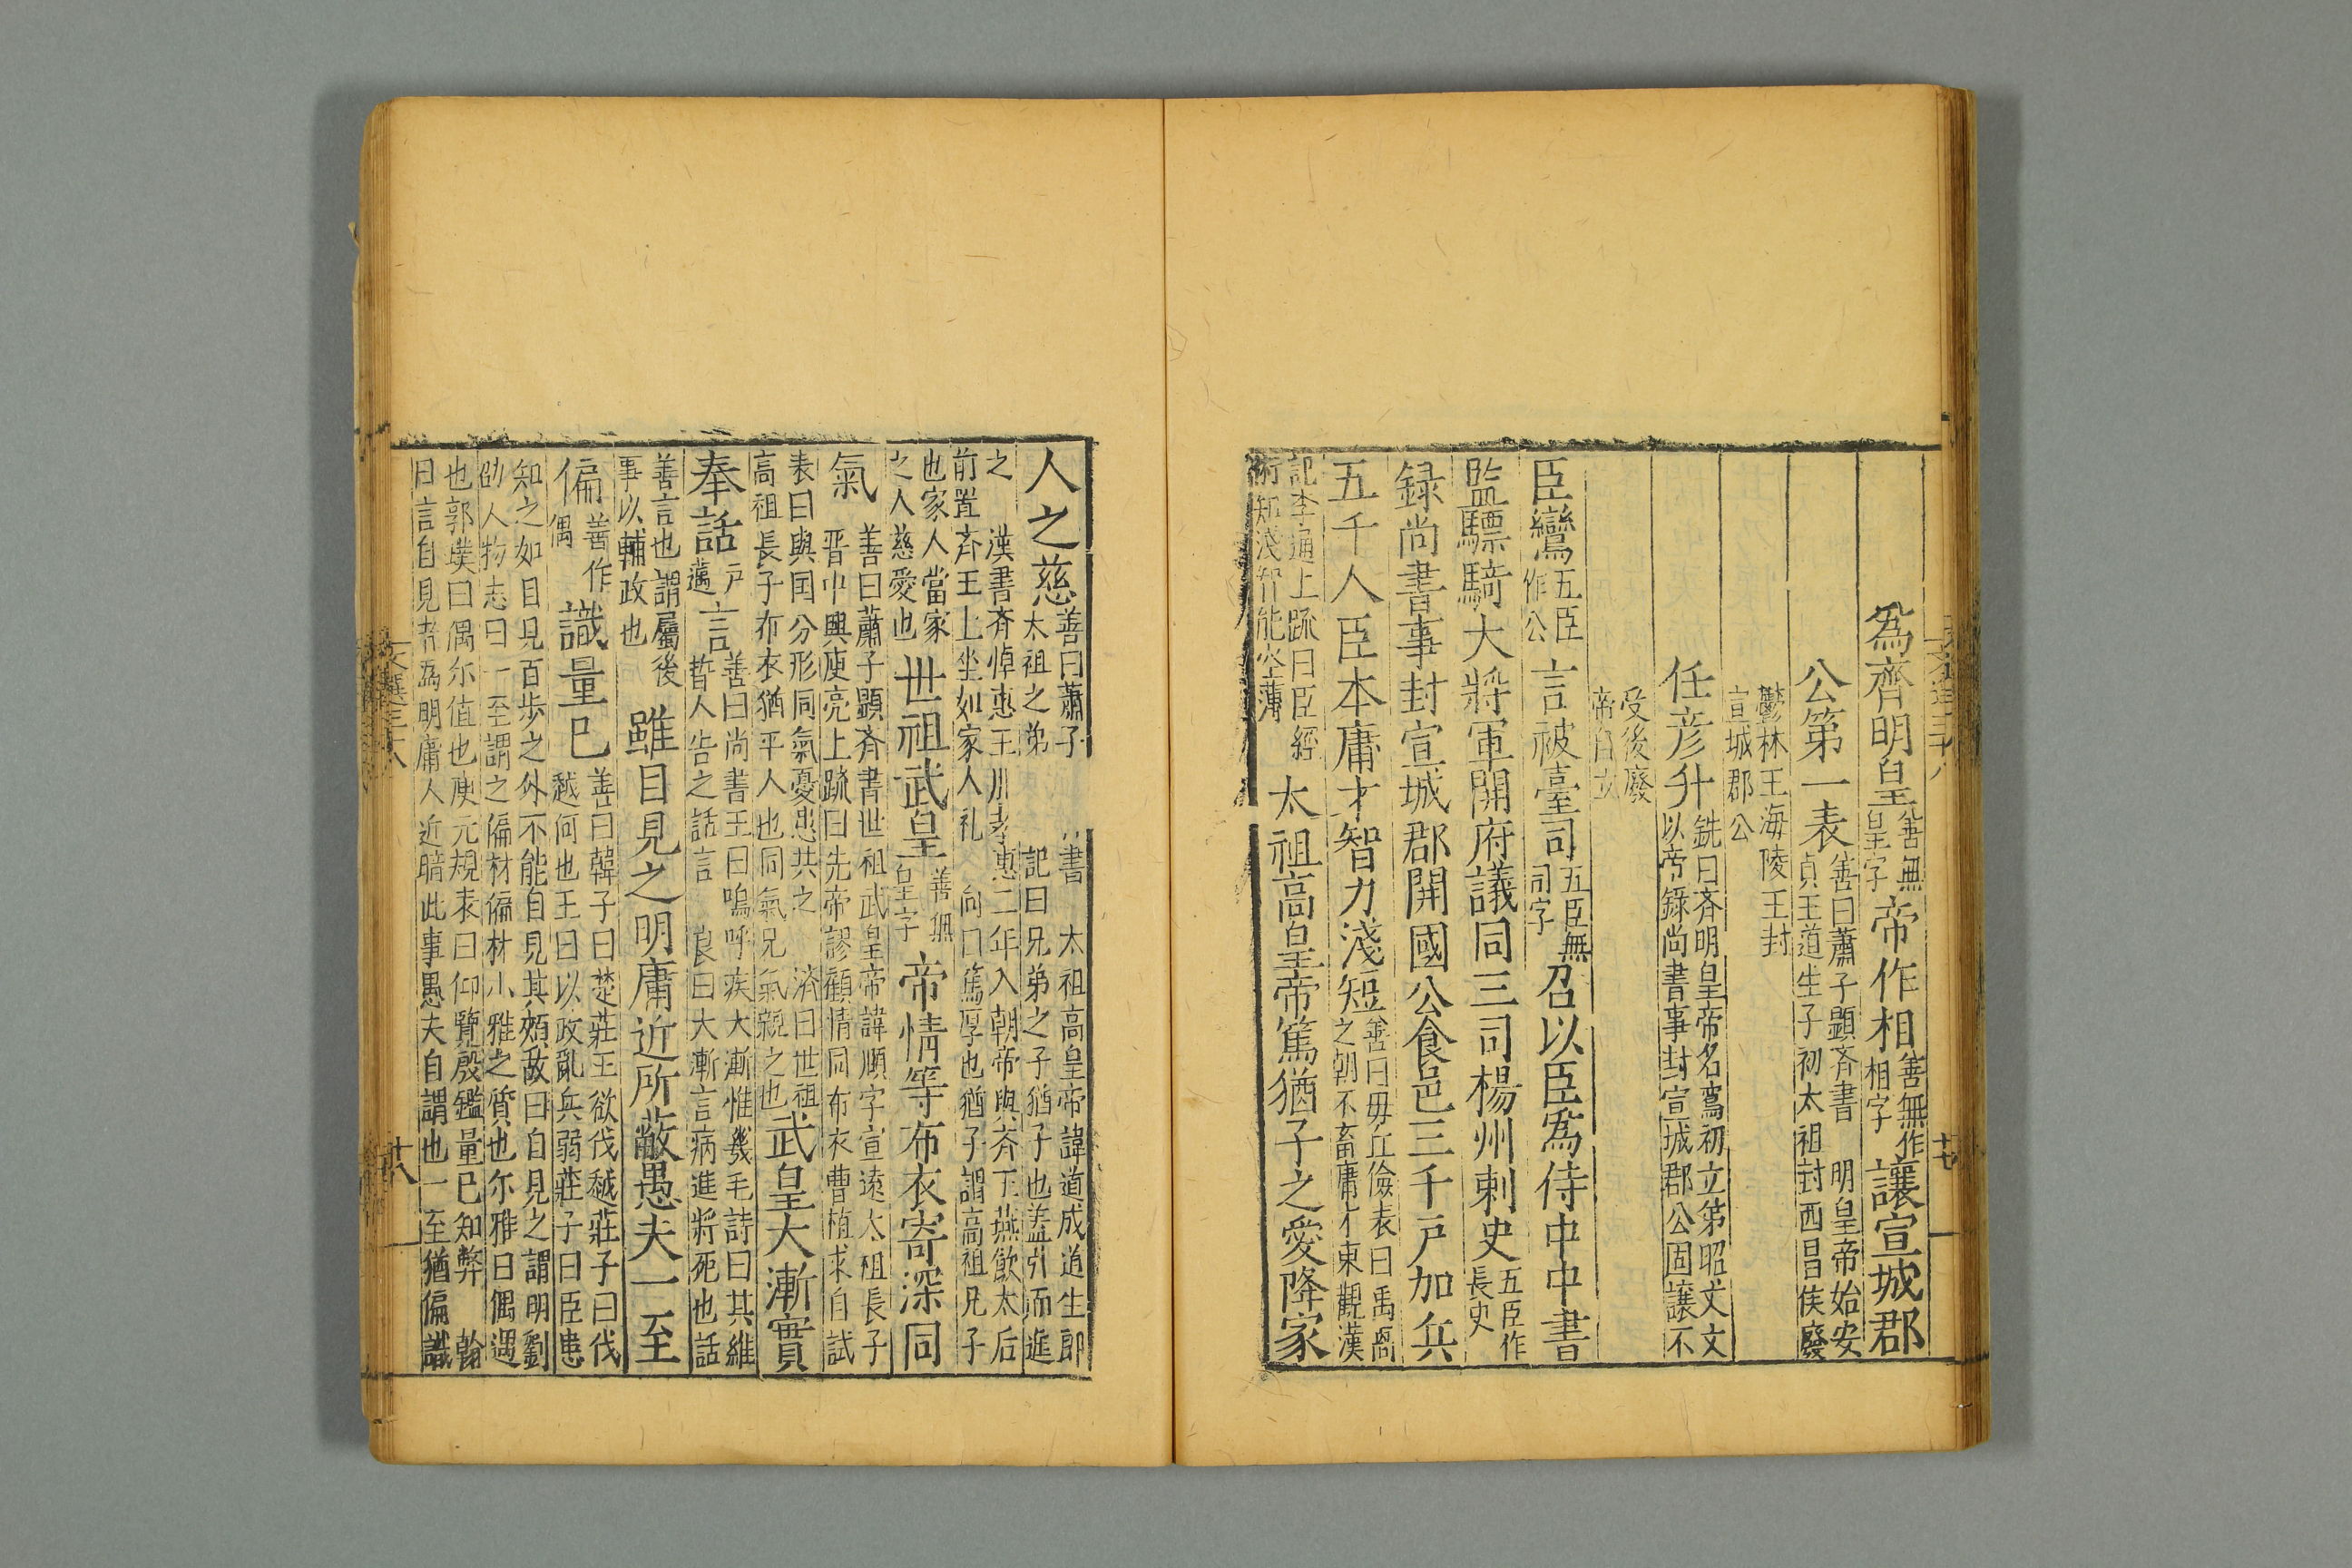 為齊明皇善無皇字帝作相善無作相字讓宣城郡
公第一表善曰蕭子顯齊書明皇帝始安貞王道生子初太祖封西昌侯廢
鬱林王海陵王封宣城郡公
任彦升銑曰齊明皇帝名鸞初立第昭文文以帝録尚書事封宣城郡公固讓不
受後廢帝自立
臣鸞五臣作公言被臺司五臣無司字召以臣為侍中中書
監驃騎大將軍開府議同三司楊州刺史五臣作長史
録尚書事封宣城郡開國公食邑三千戶加兵
五千人臣本庸才智力淺短善曰毋丘儉表曰禹卨之朝不畜庸才東觀漢
記李通上疏曰臣經術短淺智能空薄太祖高皇帝篤猶子之愛降家
人之慈善曰蕭子書太祖高皇帝諱道成道生即太祖之弟記曰兄弟之子猶子也盖引而進
之漢書齊悼惠王孝惠二年入朝帝與齊王燕飲太后前置齊王上坐如家人礼向曰篤厚也猶子謂高祖兄子
也家人當家之人慈愛也世祖武皇善無皇字帝情等布衣寄深同
氣善曰蕭子顯齊書世祖武皇帝諱順字宣遠太祖長子晋中興庾亮上疏曰先帝謬顧情同布衣曹植求自試
表曰與国分形同氣憂患共之濟曰世祖高祖長子布衣猶平人也同氣兄氣親之也武皇大漸實
奉話戸邁言善曰尚書王曰嗚呼疾大漸惟幾毛詩曰其維哲人告之話言良曰大漸言病進將死也話
善言也謂屬後事以輔政也雖自見之明庸近所蔽愚夫一至
偏善作偶識量已善曰韓子曰楚莊王欲伐越莊子曰伐越何也王曰以政亂兵弱莊子曰臣患
知之如目見百歩之外不能自見其頰敌曰自見之謂明劉劭人物志曰一至謂之偏材偏材小雅之質也尔雅曰偶遇
也郭璞曰偶尔值也庾元規表曰仰覽殷鑑量已知弊翰曰言自見者為明庸人近暗此事愚夫自謂也一至猶偏識
文選三十八
十七
文選三十八
十八